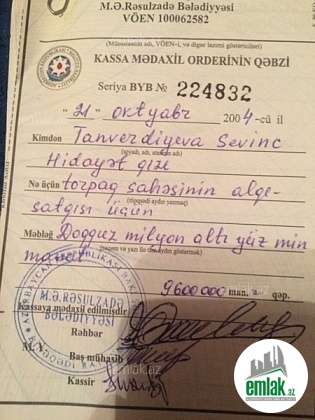 M.Ə.Rəsulzadə Bələdiyyəsi
VÖEN 100062582
(Müəssisənin adı, VÖEN-i, və digər lazımi göstəriciləri)
KASSA MƏDAXİL ORDERİNİN QƏBZİ
Seriya BYB № 224832
"21" oktyabr 2004-cü il
Kimdən Tanverdiyeva Sevinc
(soyadı, adı, atasının adı)
Hidayət qızı
Nə üçün torpaq sahəsinin alqı-
satqısı üçün
Məbləğ Doqquz milyon altı yüz min
manat
9600000 man. qəp.
Kassaya mədaxil edilmişdir
Rəhbər
M.Y.
Baş mühasib
Kassir
M.Ə.RƏSULZADƏ
BƏLƏDİYYƏSİ
emlak.az